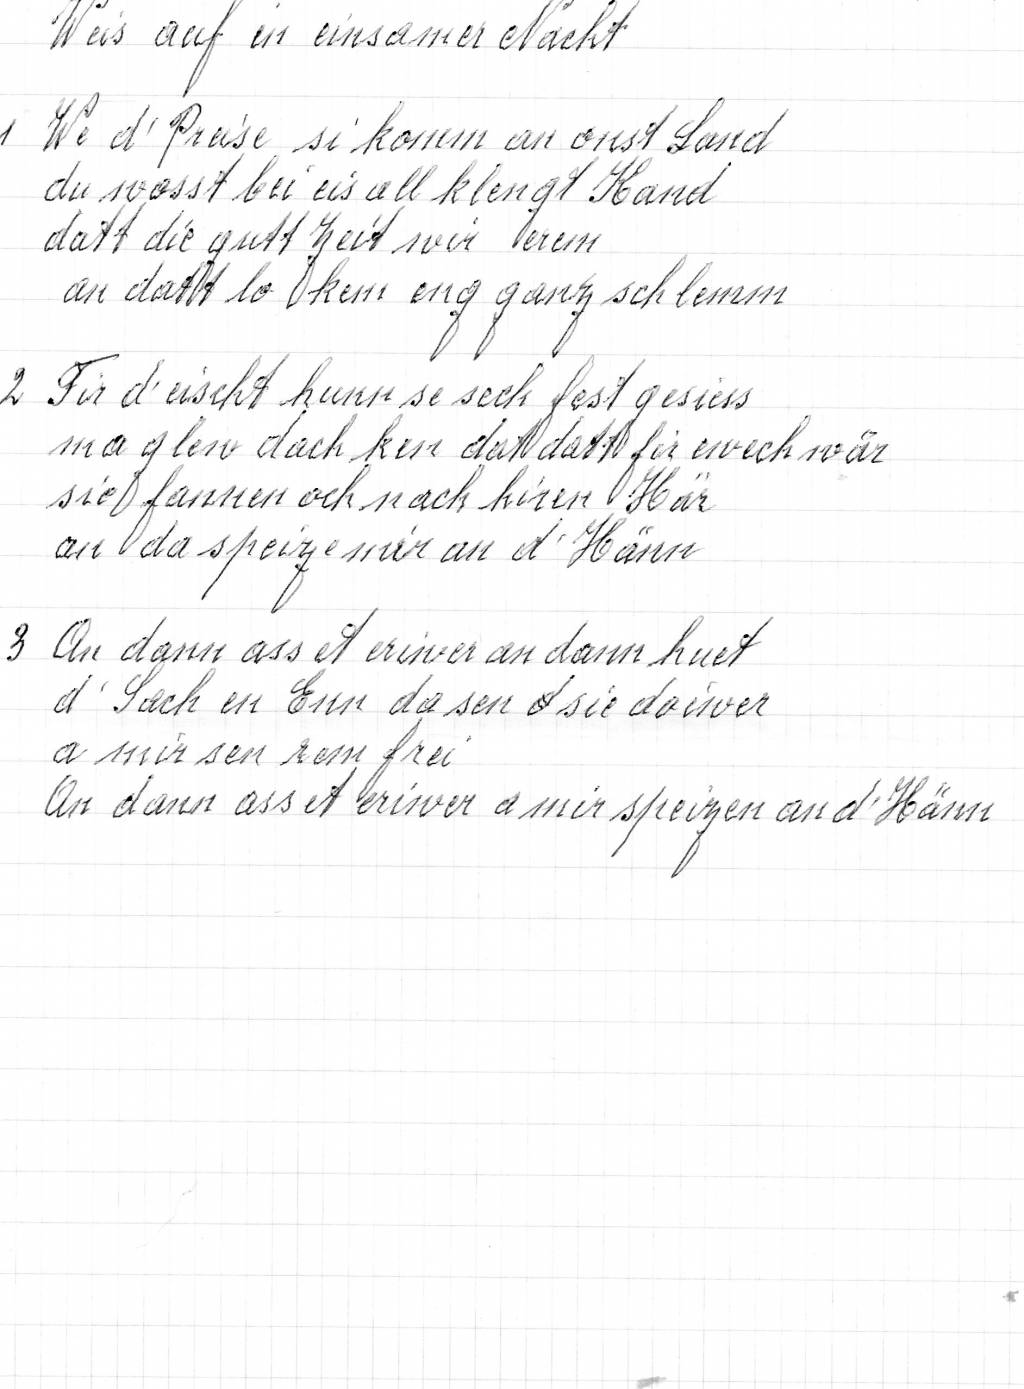 Weis auf in einsamer Nacht
1 We d' Preise si komm an onst Land
du wosst bei eis all klengt Kand
datt die gutt Zeit wir erem
an datt lo kem eng ganz schlemm
2 Fir d' eischt hunn se sech fest gesiess
ma glew dach ken dat datt fir ewech wär
sie fannen och nach hiren Här
an da speize mir an d' Hänn
3 An dann ass et eriwer an dann huet
d' Sach en Enn da sen sie doiwer
a mir sen rem frei
An dann ass et eriwer a mir speizen an d' Hänn